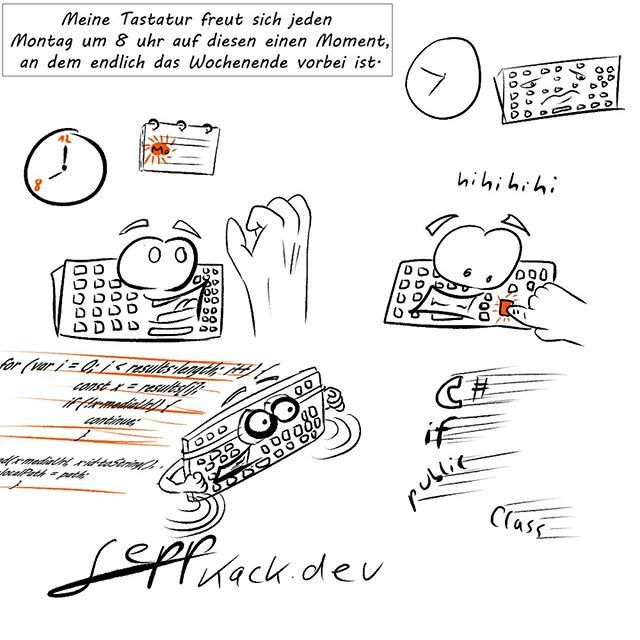 Meine Tastatur freut sich jeden
Montag um 8 uhr auf diesen einen Moment,
an dem endlich das Wochenende vorbei ist.
12
8
Mo
hihihihi
for (var i = 0; i < results.length; i++)
const x = results[i];
if (!x.mediaUrl) {
continue;
}
x.mediaUrl, x.id.toString(),
localPath = path;
}
C#
if
public
Class
Seppkack.dev